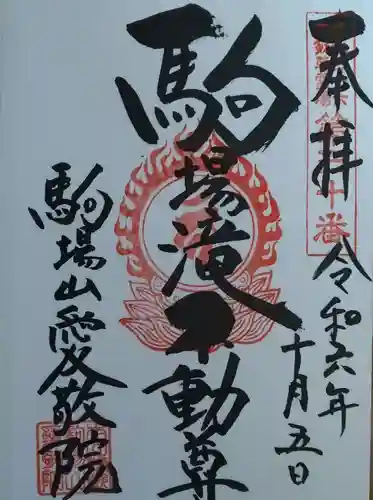 奉拝
令和六年
十月五日
駒場滝不動尊
駒場山愛敬院